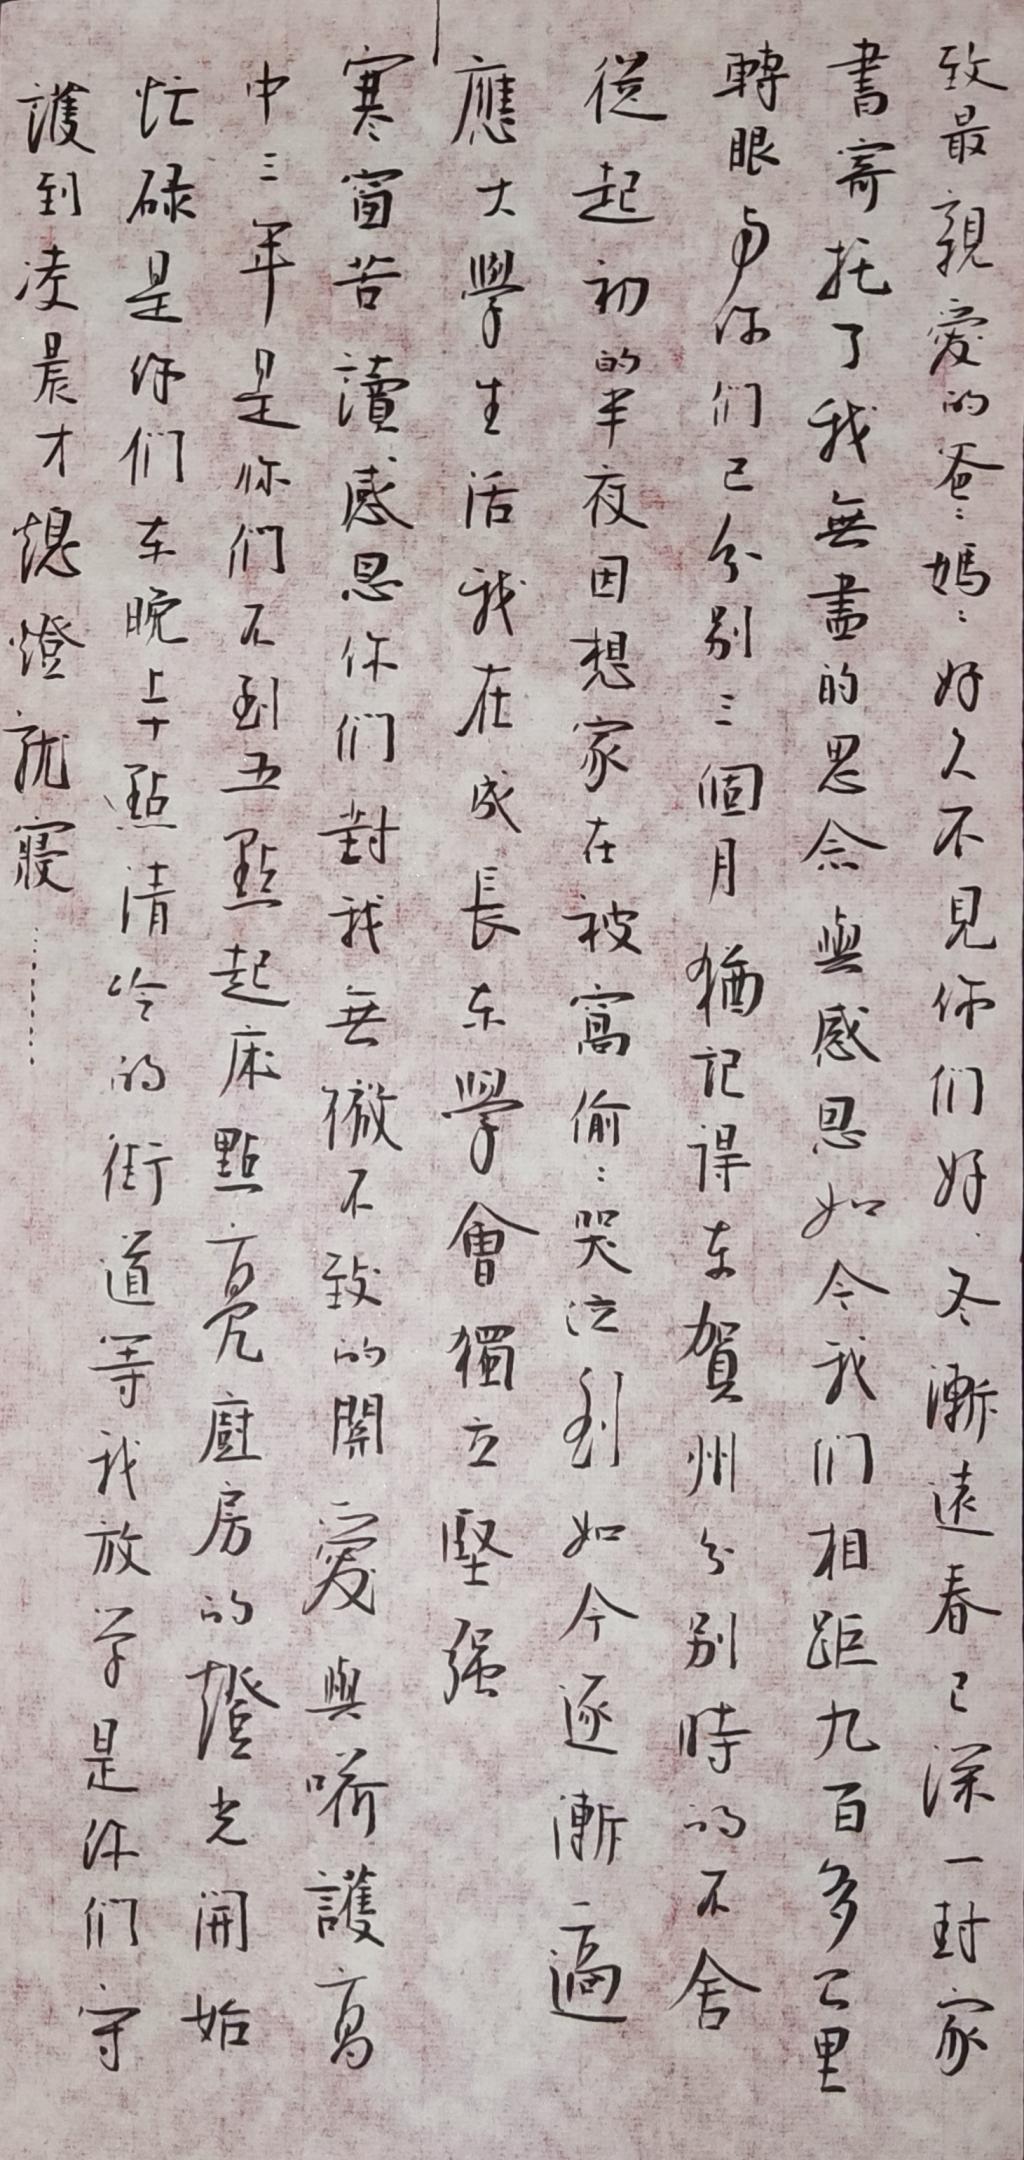 致最親愛的爸〻媽〻好久不見你们好冬漸遠春已深一封家
書寄托了我無盡的思念與感恩如今我们相距九百多公里
轉眼与你们已分别三個月猶記得在賀州分别時的不舍
從起初的半夜因想家在被窩偷〻哭泣到如今逐漸適
應大學生活我在成長在學會獨立堅强
寒窗苦讀感恩你们對我無微不致的關愛與呵護高
中三年是你们不到五點起床點亮厨房的燈光開始
忙碌是你们在晚上十點清冷的街道等我放学是你们守
護到凌晨才熄燈就寢……